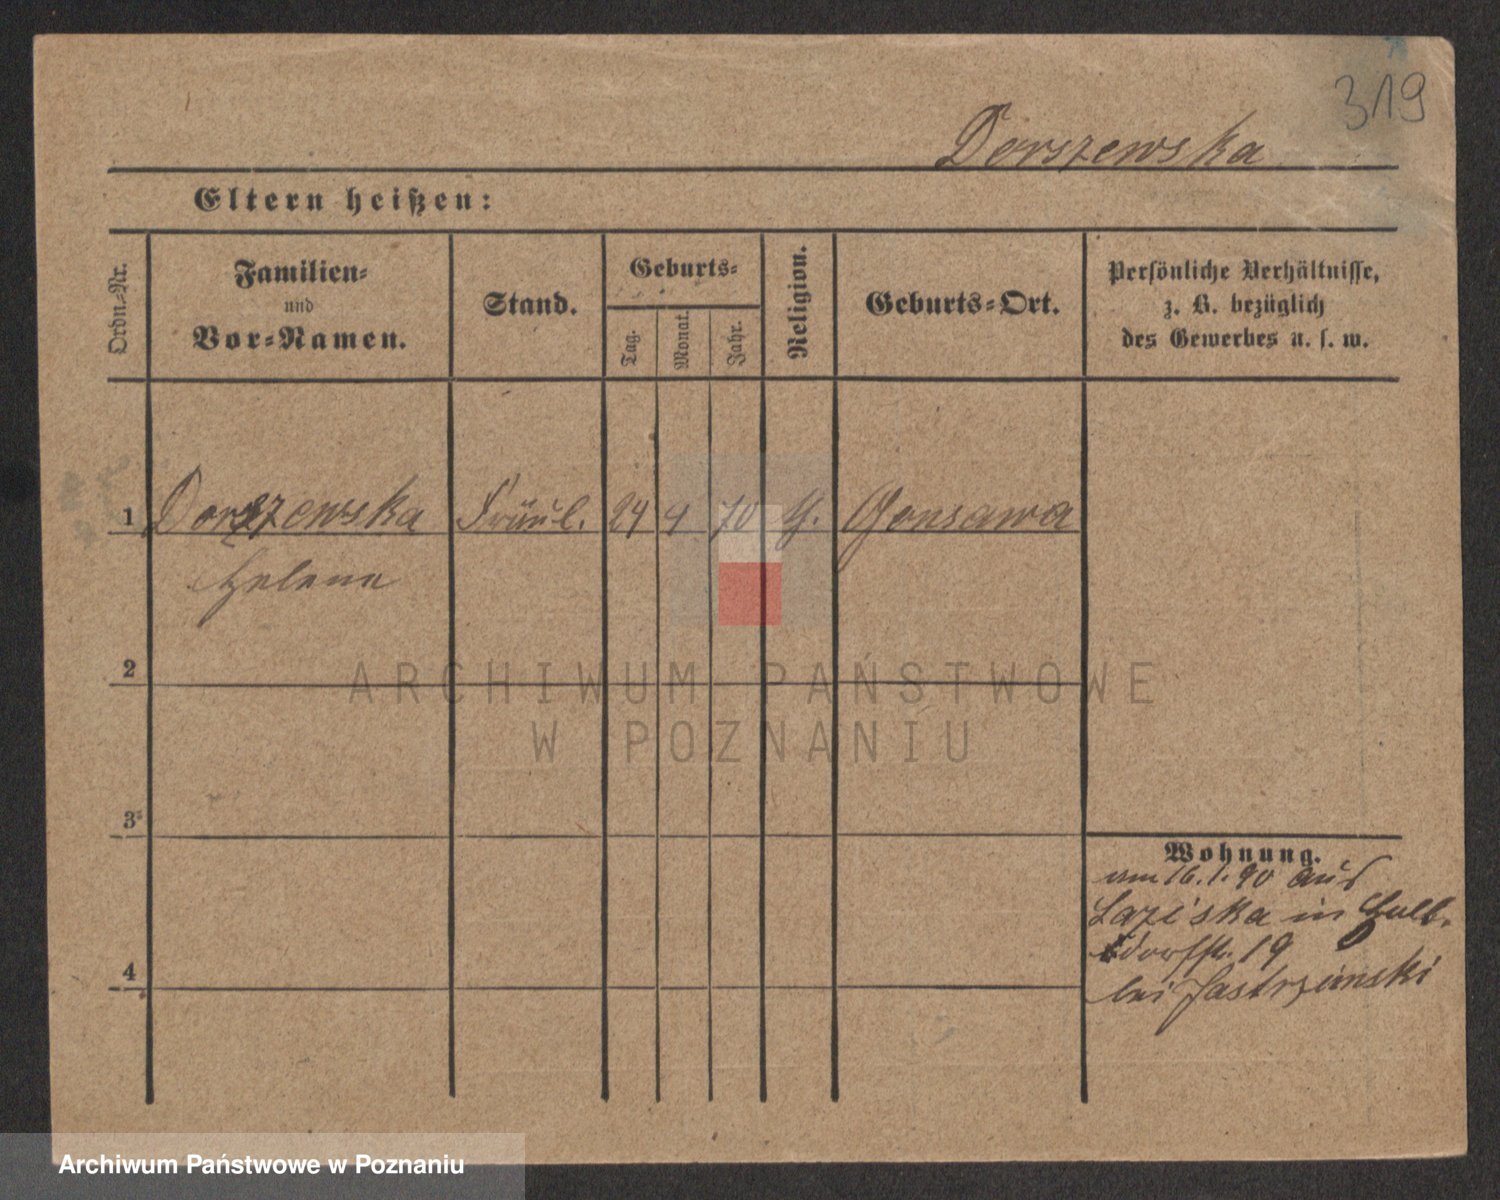 319
Dorszewska
Eltern heißen:
Ordn.-Nr.
Familien-
und
Vor-Namen.
Stand.
Geburts-
Tag.
Monat.
Jahr.
Religion.
Geburts-Ort.
Persönliche Verhältnisse,
z. B. bezüglich
des Gewerbes u. s. w.
1 Dorszewska Fräul. 24 9 70 Gonsawa
Helene
2
ARCHIWUM PAŃSTWOWE
W POZNANIU
3
4
Wohnung.
am 16.1.90 aus
Laziska in Halb-
dorfstr. 19
bei Jastrzemski
Archiwum Państwowe w Poznaniu